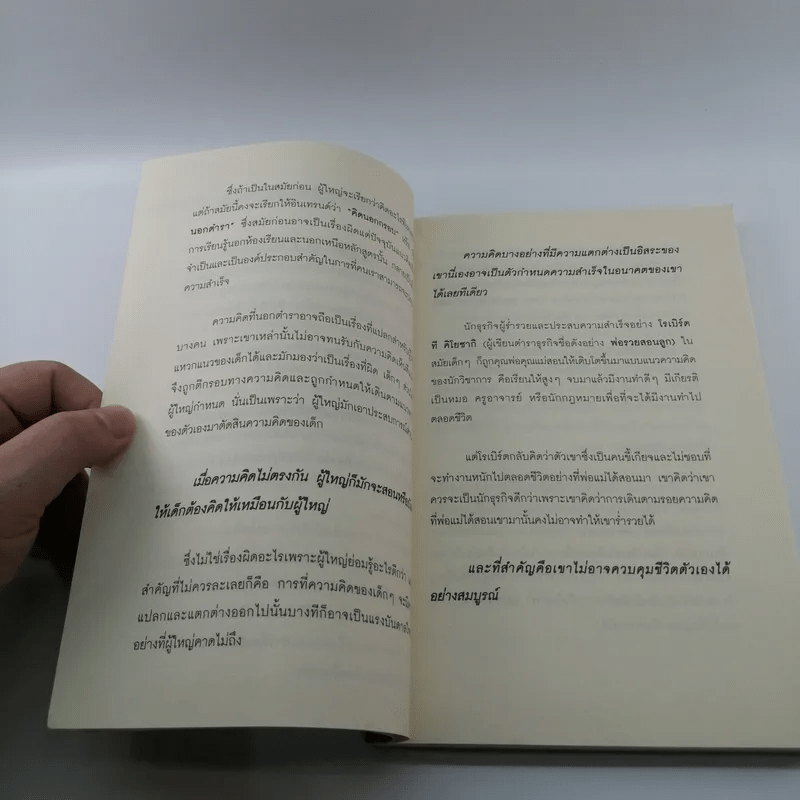 ซึ่งถ้าเป็นในสมัยก่อน ผู้ใหญ่จะเรียกว่าคิดอะไร
แต่ถ้าสมัยนี้คงจะเรียกให้อินเทรนด์ว่า "คิดนอกกรอบ"
นอกตำรา" ซึ่งสมัยก่อนอาจเป็นเรื่องผิดแต่ปัจจุบัน
การเรียนรู้นอกห้องเรียนและนอกเหนือหลักสูตรนั้น
จำเป็นและเป็นองค์ประกอบสำคัญในการที่คนเราสามารถ
ความสำเร็จ
ความคิดที่นอกตำราอาจถือเป็นเรื่องที่แปลกสำหรับ
บางคน เพราะเขาเหล่านั้นไม่อาจทนรับกับความคิด
แหวกแนวของเด็กได้และมักมองว่าเป็นเรื่องที่ผิด เด็กๆ
จึงถูกตีกรอบทางความคิดและถูกกำหนดให้เดินตาม
ผู้ใหญ่กำหนด นั่นเป็นเพราะว่า ผู้ใหญ่มักเอาประสบการณ์
ของตัวเองมาตัดสินความคิดของเด็ก
เมื่อความคิดไม่ตรงกัน ผู้ใหญ่ก็มักจะสอน
ให้เด็กต้องคิดให้เหมือนกับผู้ใหญ่
ซึ่งไม่ใช่เรื่องผิดอะไรเพราะผู้ใหญ่ย่อมรู้อะไรดีกว่า
สำคัญที่ไม่ควรละเลยก็คือ การที่ความคิดของเด็กๆ
แปลกและแตกต่างออกไปนั้นบางทีก็อาจเป็นแรงบันดาลใจ
อย่างที่ผู้ใหญ่คาดไม่ถึง
ความคิดบางอย่างที่มีความแตกต่างเป็นอิสระของ
เขานี่เองอาจเป็นตัวกำหนดความสำเร็จในอนาคตของเขา
ได้เลยทีเดียว
นักธุรกิจผู้ร่ำรวยและประสบความสำเร็จอย่าง โรเบิร์ต
ที คิโยซากิ (ผู้เขียนตำราธุรกิจชื่อดังอย่าง พ่อรวยสอนลูก) ใน
สมัยเด็กๆ ก็ถูกคุณพ่อคุณแม่สอนให้เติบโตขึ้นมาแบบแนวความคิด
ของนักวิชาการ คือเรียนให้สูงๆ จบมาแล้วมีงานทำดีๆ มีเกียรติ
เป็นหมอ ครูอาจารย์ หรือนักกฎหมายเพื่อที่จะได้มีงานทำไป
ตลอดชีวิต
แต่โรเบิร์ตกลับคิดว่าตัวเขาซึ่งเป็นคนขี้เกียจและไม่ชอบที่
จะทำงานหนักไปตลอดชีวิตอย่างที่พ่อแม่ได้สอนมา เขาคิดว่าเขา
ควรจะเป็นนักธุรกิจดีกว่าเพราะเขาคิดว่าการเดินตามรอยความคิด
ที่พ่อแม่ได้สอนเขามานั้นคงไม่อาจทำให้เขาร่ำรวยได้
และที่สำคัญคือเขาไม่อาจควบคุมชีวิตตัวเองได้
อย่างสมบูรณ์